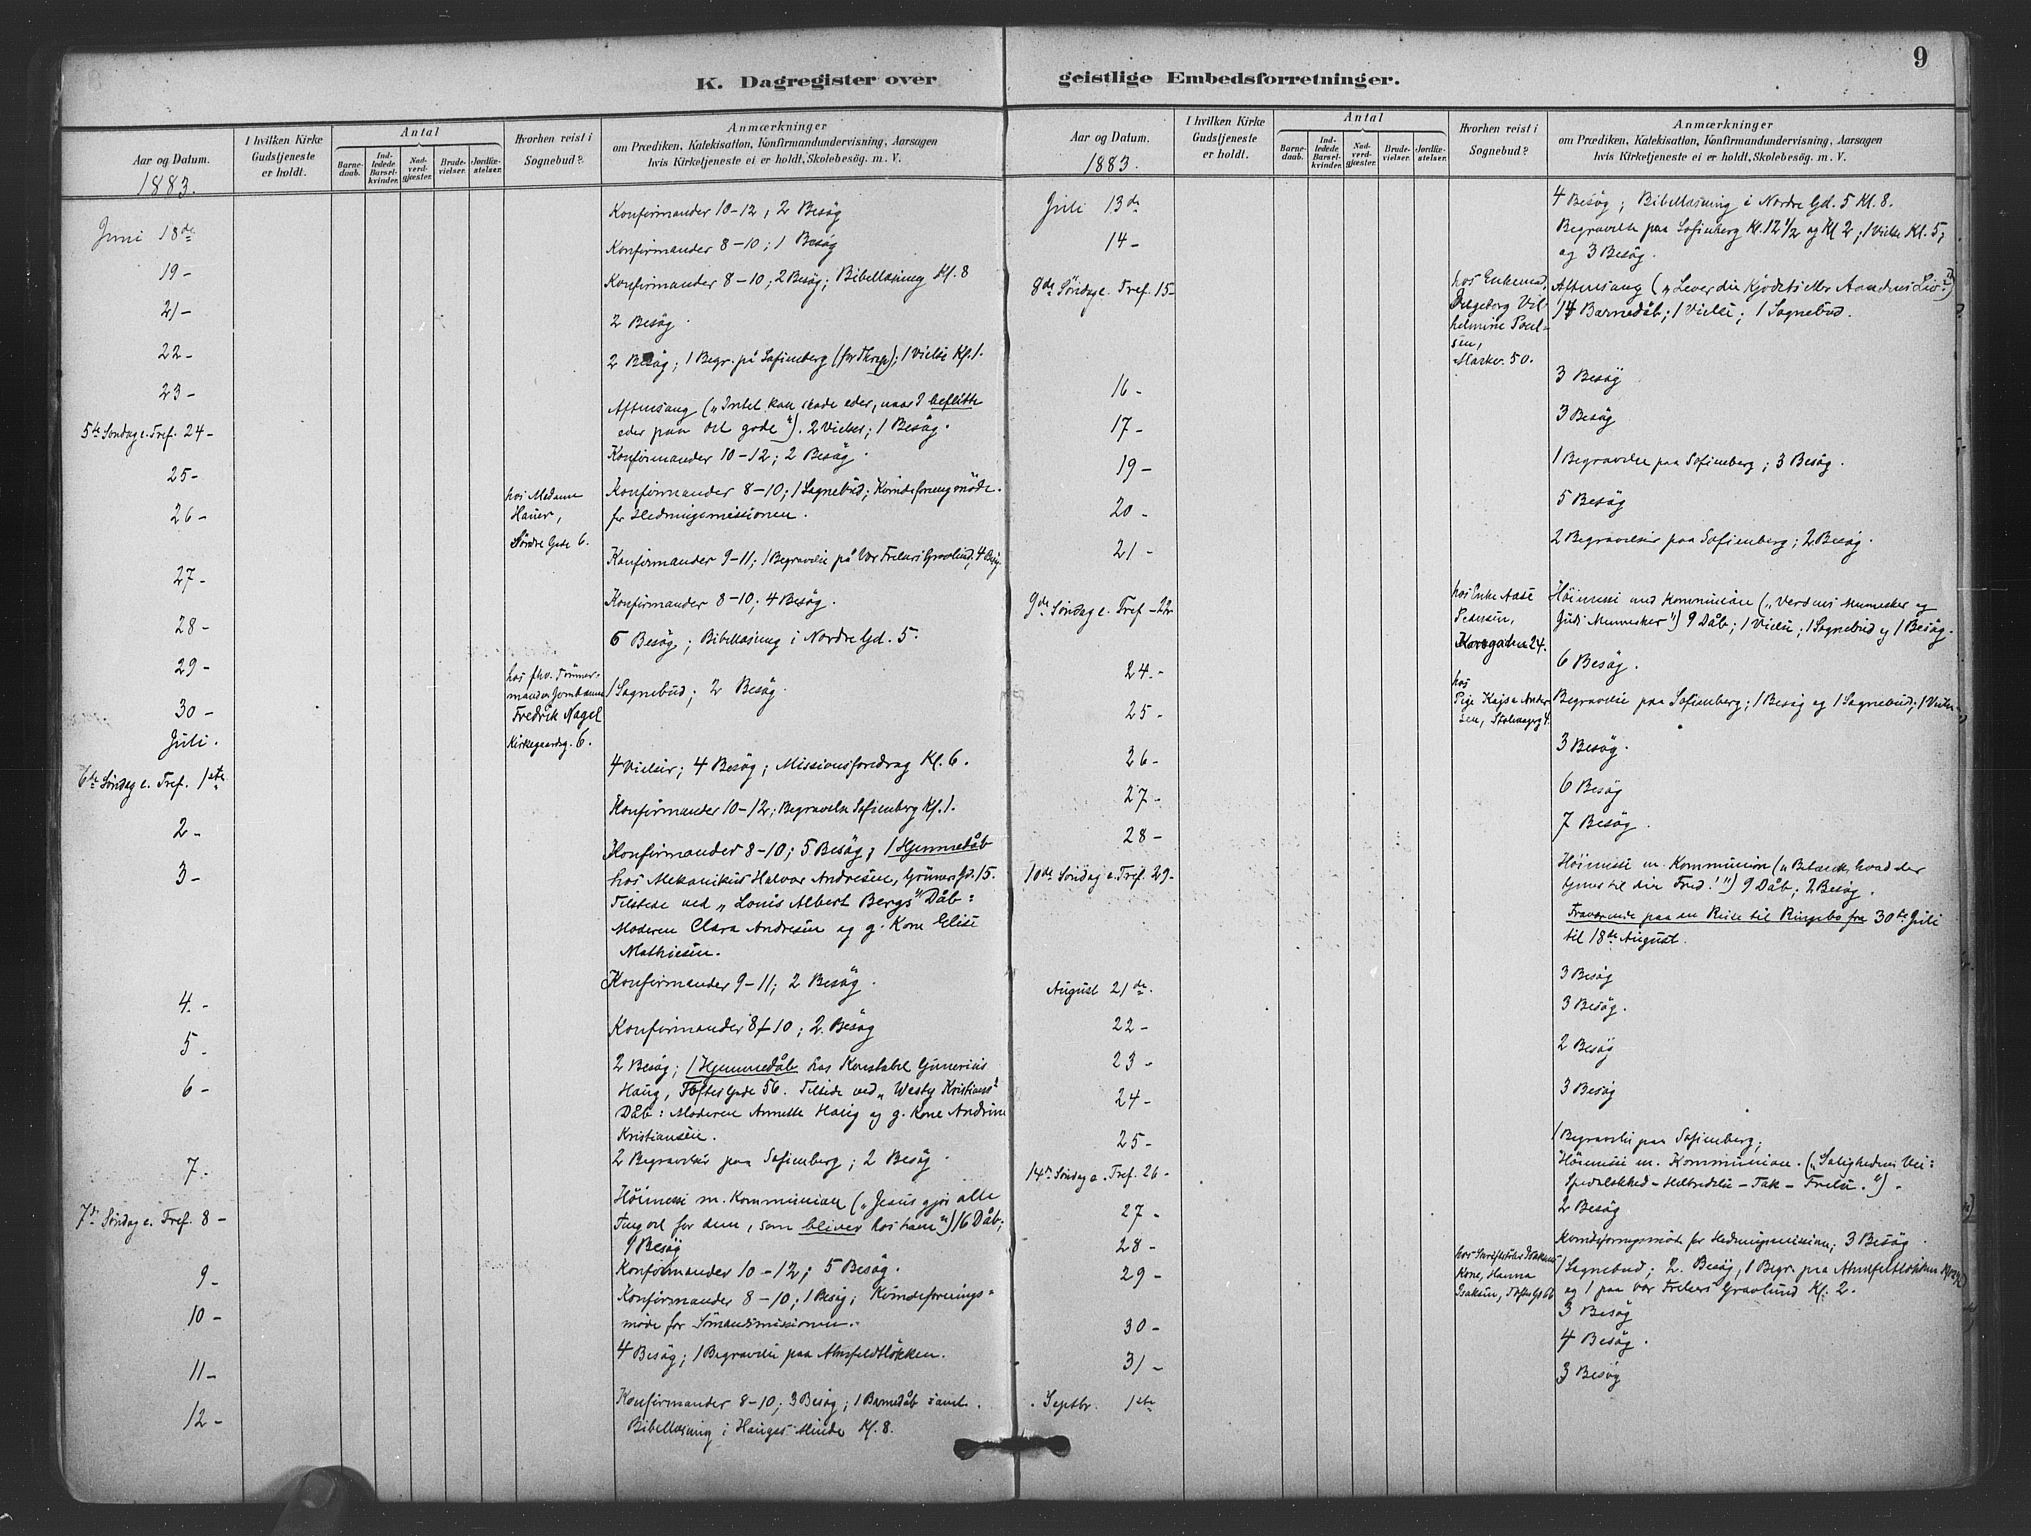 9
K. Dagregister over geistlige Embedsforretninger.
Aar og Datum.
1883.
I hvilken Kirke
Gudstjeneste
er holdt.
Antal
Barne-
daab.
Ind-
ledede
Barsel-
kvinder.
Nad-
verd-
gjæster.
Brude-
vielser.
Jordfæ-
stelser.
Hvorhen reist i
Sognebud?
Anmærkninger
om Prædiken, Katekisation, Konfirmandundervisning, Aarsagen
hvis Kirketjeneste ei er holdt, Skolebesög. m. V.
Juni 18de
Konfirmander 10-12; 2 Besøg
19-
Konfirmander 8-10; 1 Besøg
21-
Konfirmander 8-10; 2 Besøg; Bibellæsning Kl. 8
22-
2 Besøg.
23-
2 Besøg; 1 Begr. på Sofienberg (for Thrap); 1 Vielse Kl. 1.
5te Søndag e. Tref. 24-
Aftensang („Intet kan skade eder, naar I beflitte
eder paa det gode“). 2 Vielser; 1 Besøg.
25-
Konfirmander 10-12; 2 Besøg.
26-
hos Madame
Hauer,
Søndre Gade 6.
Konfirmander 8-10; 1 Sognebud; Kvindeforeningsmøde
for Hedningemissionen.
27-
Konfirmander 9-11; 1 Begravelse på Vor Frelsers Gravlund, 4 Besøg.
28-
Konfirmander 8-10; 4 Besøg.
29-
6 Besøg; Bibellæsning i Nordre Gd. 5.
30-
hos fhv. Tømmer-
mand
Fredrik Nagel
Kirkegaardsg. 6.
1 Sognebud; 2 Besøg.
Juli.
6te Søndag e. Tref. 1ste
4 Vielser; 4 Besøg; Missionsforedrag Kl. 6.
2-
Konfirmander 10-12; Begravelse Sofienberg Kl. 1.
3-
Konfirmander 8-10; 5 Besøg; 1 Hjemmedåb
hos Mekanikus Halvor Andresen, Grüners Gd. 15.
Tilstede ved „Louis Albert Bergs“ Dåb:
Moderen Clara Andresen og g. Kone Elise
Mathiesen.
4.-
Konfirmander 9-11; 2 Besøg.
5-
Konfirmander 8-10; 2 Besøg
6-
2 Besøg; 1 Hjemmedåb hos Konstabel Gunerius
Haug, Toftes Gade 56. Tilstede ved „Westy Kristians“
Dåb: Moderen Annette Haug og g. Kone Andrine
Kristiansen.
7.
2 Begravelser paa Sofienberg; 2 Besøg.
7de Søndag e. Tref. 8-
Höimesse m. Kommunion („Jesus gjør alle
Ting vel for dem, som bliver hos ham“) 16 Dåb;
1 Besøg
9-
Konfirmander 10-12; 5 Besøg.
10-
Konfirmander 8-10; 1 Besøg; Kvindeforenings-
møde for Sømandsmissionen.
11-
4 Besøg; 1 Begravelse paa Ahnfeldtløkken.
12-
Konfirmander 8-10; 3 Besøg; 1 Barnedåb samt
Bibellæsning i Hauges Minde Kl. 8.
Aar og Datum.
1883
I hvilken Kirke
Gudstjeneste
er holdt.
Antal
Barne-
daab.
Ind-
ledede
Barsel-
kvinder.
Nad-
verd-
gjæster.
Brude-
vielser.
Jordfæ-
stelser.
Hvorhen reist i
Sognebud?
Anmærkninger
om Prædiken, Katekisation, Konfirmandundervisning, Aarsagen
hvis Kirketjeneste ei er holdt, Skolebesög. m. V.
Juli 13de
4 Besøg; Bibellæsning i Nordre Gd. 5 Kl. 8.
14-
Begravelse paa Sofienberg Kl. 12 1/2 og Kl 2; 1 Vielse Kl. 5;
og 3 Besøg.
8de Søndag e. Tref. 15-
hos Enkemad.
Ingeborg Vil-
helmine Poul-
sen,
Markv. 50.
Aftensang („Lever du Kjødets eller Aandens Liv?“)
14 Barnedåb; 1 Vielse; 1 Sognebud.
16-
3 Besøg
17-
3 Besøg
19-
1 Begravelse paa Sofienberg; 3 Besøg.
20-
5 Besøg
21-
2 Begravelser paa Sofienberg; 2 Besøg.
9de Søndag e. Tref - 22
hos Enke Aase
Pedersen,
Korsgaden 24.
Höimesse med Kommunion („Verdens Mennesker og
Guds Mennesker“) 9 Dåb; 1 Vielse; 1 Sognebud og 1 Besøg.
24.-
6 Besøg.
25-
hos
Pige Kajsa Ander
sen,
Begravelse paa Sofienberg; 1 Besøg og 1 Sognebud; 1 Vielse
26-
3 Besøg.
27-
6 Besøg
28-
7 Besøg.
10de Søndag e. Tref. 29-
Höimesse m. Kommunion („Betænk hvad der
tjener til din Fred!“) 9 Dåb; 2 Besøg.
Fraværende paa en Reise til Ringebo fra 30te Juli
til 18de August.
August 21de.
3 Besøg
22-
3 Besøg.
23-
2 Besøg
24-
3 Besøg
25-
1 Begravelse paa Sofienberg;
14de Søndag e. Tref. 26-
Höimesse m. Kommunion. („Salighedens Vei:
Spedalskhed - Helbredelse - Tak - Frelse.“).
27-
2 Besøg
28-
Kvindeforeningsmøde for Hedningemissionen; 3 Besøg.
29-
hos Isaksens
Kone, Hanna
Isaksen, Toftes Gd 66
1 Sognebud; 2. Besøg, 1 Begr. paa Ahnfeltløkken
og 1 paa Vor Frelsers Gravlund Kl. 2.
30-
3 Besøg
31-
4 Besøg.
Septbr. 1ste
3 Besøg